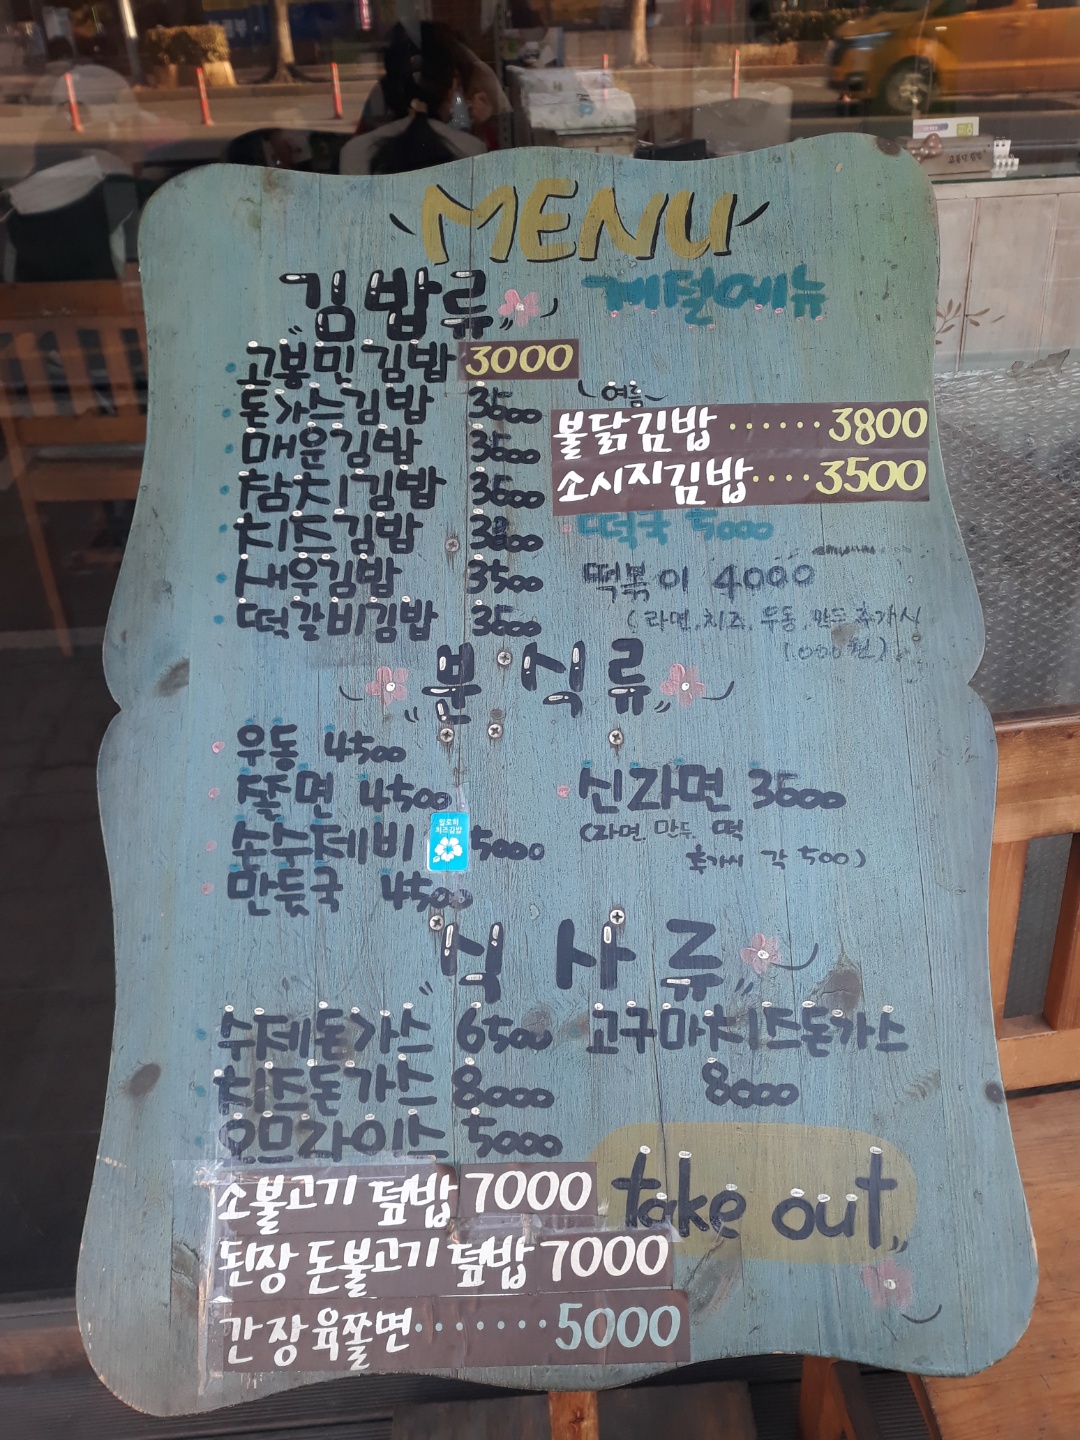 MENU
김밥류
고봉민김밥 3000
돈가스김밥 3500
매운김밥 3500
참치김밥 3500
치즈김밥 3800
새우김밥 3500
떡갈비김밥 3500
계절메뉴
여름
불닭김밥 ······ 3800
소시지김밥 ···· 3500
떡국 5000
떡볶이 4000
(라면, 치즈, 우동, 만두 추가시
1,000원)
분식류
우동 4500
쫄면 4500
손수제비 5000
만둣국 4500
신라면 3500
(라면, 만두, 떡
추가시 각 500)
치즈김밥
식사류
수제돈가스 6500
치즈돈가스 8000
오므라이스 5000
소불고기 덮밥 7000
된장 돈불고기 덮밥 7000
간장육쫄면 ······· 5000
고구마치즈돈가스
8000
take out